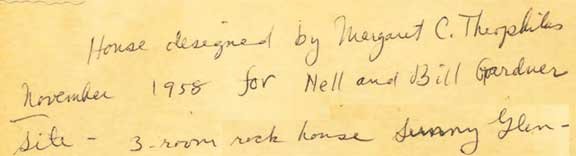 House designed by Margaret C. Theophilus
November 1958 for Nell and Bill Gardner
Site - 3-room rock house Sunny Glen -